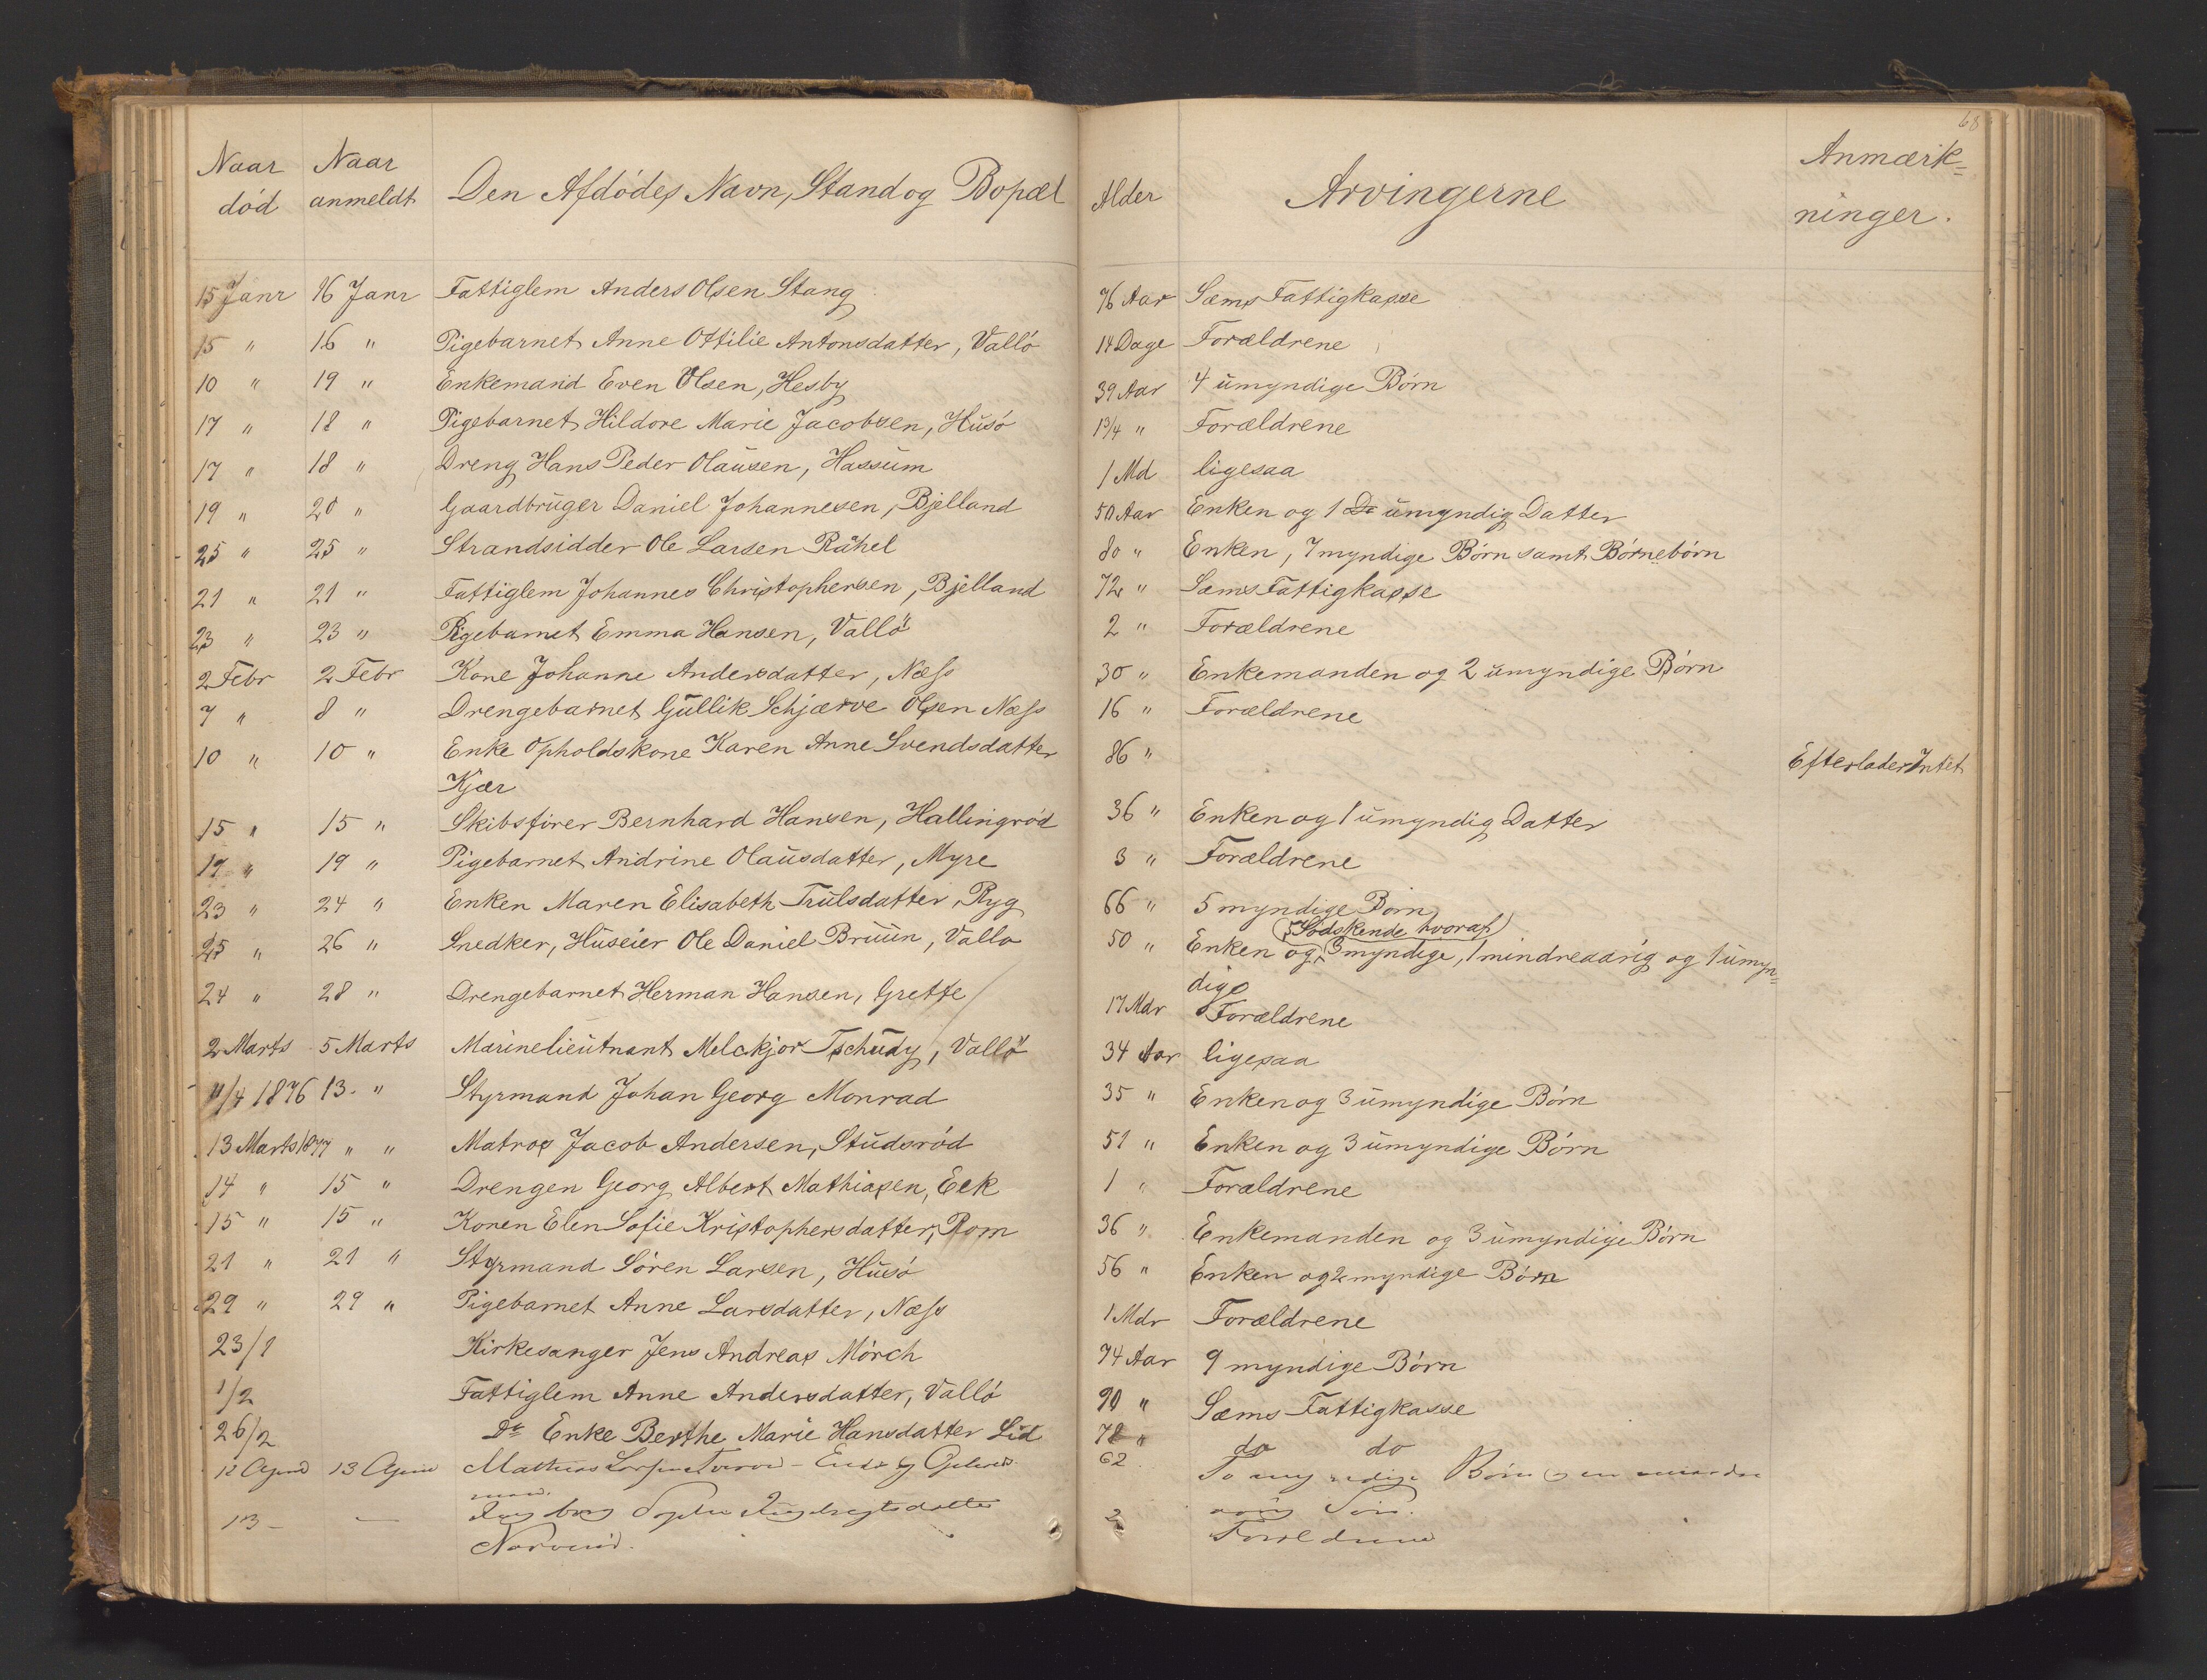 68
Naar død Naar anmeldt Den Afdødes Navn, Stand og Bopæl Alder Arvingerne Anmærkninger.
15 Janr 16 Janr Fattiglem Anders Olsen Stang 76 Aar Sæms Fattigkasse
15 " 16 " Pigebarnet Anne Ottilie Antonsdatter, Vallö 14 Dage Forældrene
10 " 19 " Enkemand Even Olsen, Hesby 39 Aar 4 umyndige Børn
17 " 18 " Pigebarnet Hildore Marie Jacobsen, Husö 1 3/4 " Forældrene
17 " 18 " Dreng Hans Peder Olausen, Hassum 1 Md ligesaa
19 " 20 " Gaardbruger Daniel Johannesen, Bjelland 50 Aar Enken og 1 Da umyndig Datter
25 " 25 " Strandsidder Ole Larsen Råhel 80 " Enken, 7 myndige Børn samt Børnebørn
21 " 21 " Fattiglem Johannes Christophersen, Bjelland 72 " Sæms Fattigkasse
23 " 23 " Pigebarnet Emma Hansen, Vallö 2 " Forældrene
2 Febr 2 Febr Kone Johanne Andersdatter, Næss 30 " Enkemanden og 2 umyndige Børn
7 " 8 " Drengebarnet Gullik Schjærve Olsen Næss 16 " Forældrene
10 " 10 " Enke Opholdskone Karen Anne Svendsdatter 86 " Efterlader Intet
Kjær
15 " 15 " Skibsfører Bernhard Hansen, Hallingrød 36 " Enken og 1 umyndig Datter
19 " 19 " Pigebarnet Andrine Olausdatter, Myre 3 " Forældrene
23 " 24 " Enken Maren Elisabeth Trulsdatter, Ryg 66 " 5 myndige Børn
25 " 26 " Snedker, Huseier Ole Daniel Bruun, Vallø 50 " Enken og 5 Sødskende hvoraf 3 myndige, 1 mindreaarig og 1 umyn=
dige
24 " 28 " Drengebarnet Herman Hansen, Grette 17 Mdr Forældrene
2 Marts 5 Marts Marinelieutnant Melckjor Tschudy, Vallö 34 Aar ligesaa
11/4 1876 13. " Styrmand Johan Georg Monrad 35 " Enken og 3 umyndige Børn
13 Marts 1877 " " Matros Jacob Andersen, Studsrød 51 " Enken og 3 umyndige Børn
14 " 15 " Drengen Georg Albert Mathiasen, Eek 1 " Forældrene
15 " 15 " Konen Elen Sofie Kristophersdatter, Rom 36 " Enkemanden og 3 umyndige Børn
21 " 21 " Styrmand Søren Larsen, Husö 56 " Enken og 2 myndige Børn
29 " 29 " Pigebarnet Anne Larsdatter, Næss 1 Mdr Forældrene
23/1 Kirkesanger Jens Andreas Mørch 74 Aar 9 myndige Børn
1/2 Fattiglem Anne Andersdatter, Vallö 90 " Sæms Fattigkasse
26/2 Do Enke Berthe Marie Hansdatter Lid 78 " do do
12 April 13 April Mathias 62 To myndige Børn og en mindre
aarig Søn.
13 — — Ingeborg Sophie Engebregtsdatter 2 Forældrene